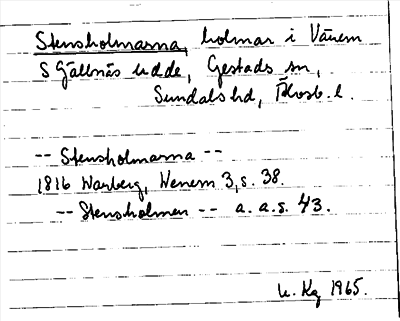 Stensholmarna, holmar i Vänern
S Gällnäs udde, Gestads sn,
Sundals hd, Älvsb. l.
-- Stensholmarna --
1816 Warberg, Wenern 3, s. 38.
-- Stensholmen -- a. a. s. 43.
U. Kg 1965.